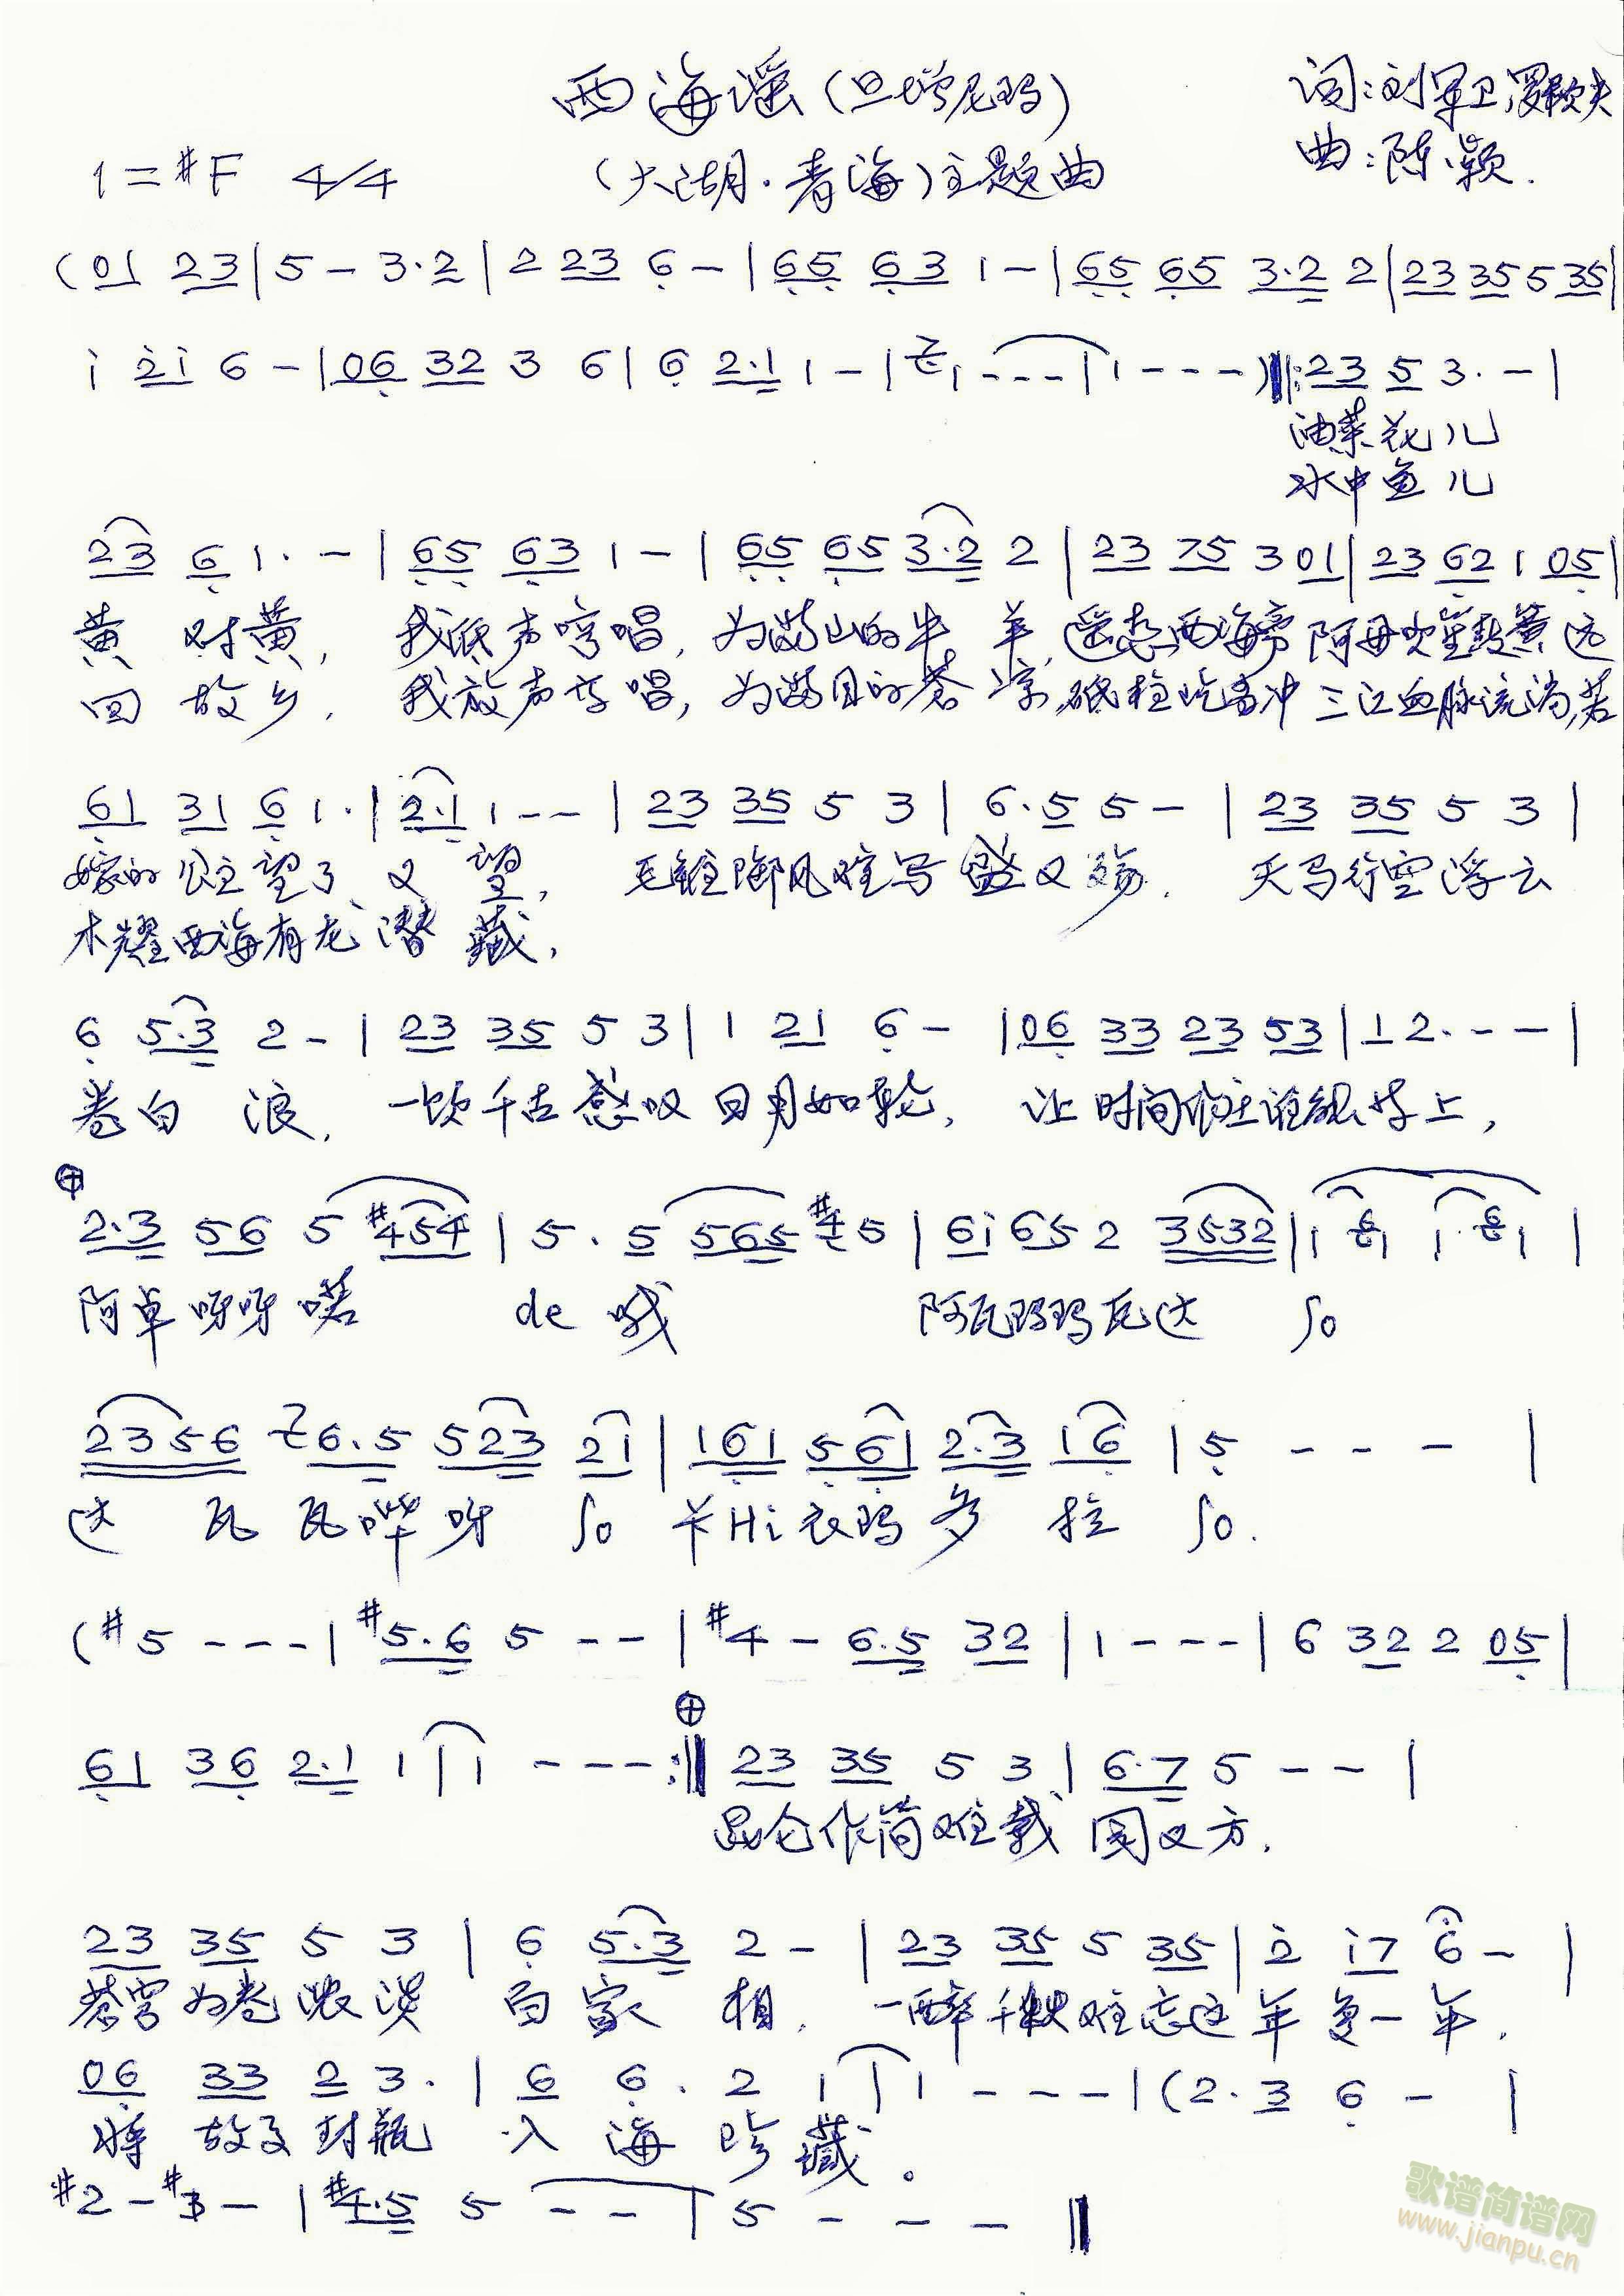 西海谣(旦增尼玛) 词:刘军卫,罗毅夫
1=#F 4/4 (大湖·青海)主题曲 曲:陈小颖.
(01 23|5-3·2|2 23 6-|65 63 1-|65 65 3·2 2|23 35 5 35|
i 2i 6-|06 32 3 6|6 2·1 1-|1---|1---)‖:23 5 3·-|
油菜花儿
水中鱼儿
23 6 1·-|65 63 1-|65 65 3·2 2|23 75 3 01|23 62 1 05|
黄对黄,我低声吟唱,为满山的牛羊,遥想西海旁阿母吹笙鼓簧远
回故乡.我放声高唱,为满目的苍凉,砥柱屹当冲三江血脉流淌,若
61 31 6 1·|2·1 1--|23 35 5 3|6·5 5-|23 35 5 3|
嫁的公主望了又望,毛锥御风难写盛又殇.天马行空浮云
木耀西海有龙潜藏,
6 5·3 2-|23 35 5 3|1 21 6-|06 33 23 53|1 2·--|
卷白浪,一饮千古感叹日月如轮,让时间
2·3 56 5 #454|5·5 565 #4 5|6i 65 2 3532|1 61 1·61|
阿卓呀呀喏 de 哦 阿瓦玛玛瓦达 So
2356 6·5 523 21|161 561 2·3 16|5---|
达瓦瓦哔呀 So 卡Hi衣玛多拉 So.
(#5---|#5·6 5--|#4-6·5 32|1---|6 32 2 05|
61 36 2·1 1|1---:‖23 35 5 3|6·7 5--|
昆仑作简难载圆又方.
23 35 5 3|6 5·3 2-|23 35 5 35|2 i7 6-|
苍穹为卷浓淡百家相.一醉千秋难忘这年复一年.
06 33 2 3·|6 6·2 1|1---|(2·3 6-|
将故事封瓶入海珍藏。
#2-#3-|#4·5 5--|5---‖
歌谱简谱网
www.jianpu.cn